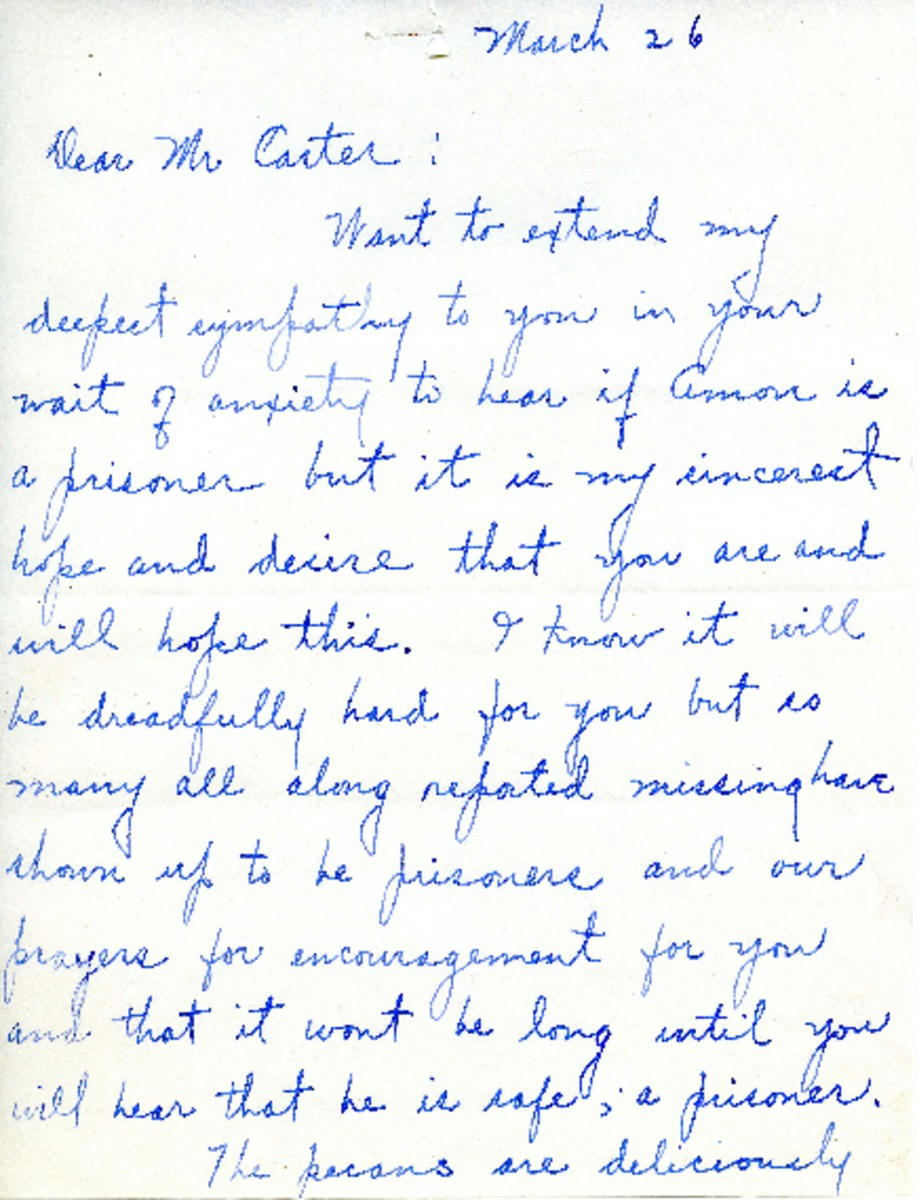 March 26
Dear Mr Carter :
Want to extend my
deepest sympathy to you in your
wait of anxiety to hear if Amon is
a prisoner but it is my sincerest
hope and desire that you are and
will hope this. I know it will
be dreadfully hard for you but so
many all along reported missing have
shown up to be prisoners and our
prayers for encouragement for you
and that it wont be long until you
will hear that he is safe ; a prisoner.
The pecans are deliciously